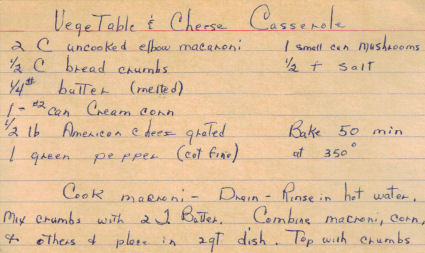 VegeTable & Cheese Casserole
2 C uncooked elbow macaroni 1 small can mushrooms
1/2 C bread crumbs 1/2 t salt
1/4# butter (melted)
1 - #2 can Cream corn
1/2 lb American cheese grated Bake 50 min
1 green pepper (cut fine) at 350°
Cook macroni - Drain - Rinse in hot water.
Mix crumbs with 2 T Butter. Combine macroni, corn,
& others & place in 2qt dish. Top with crumbs